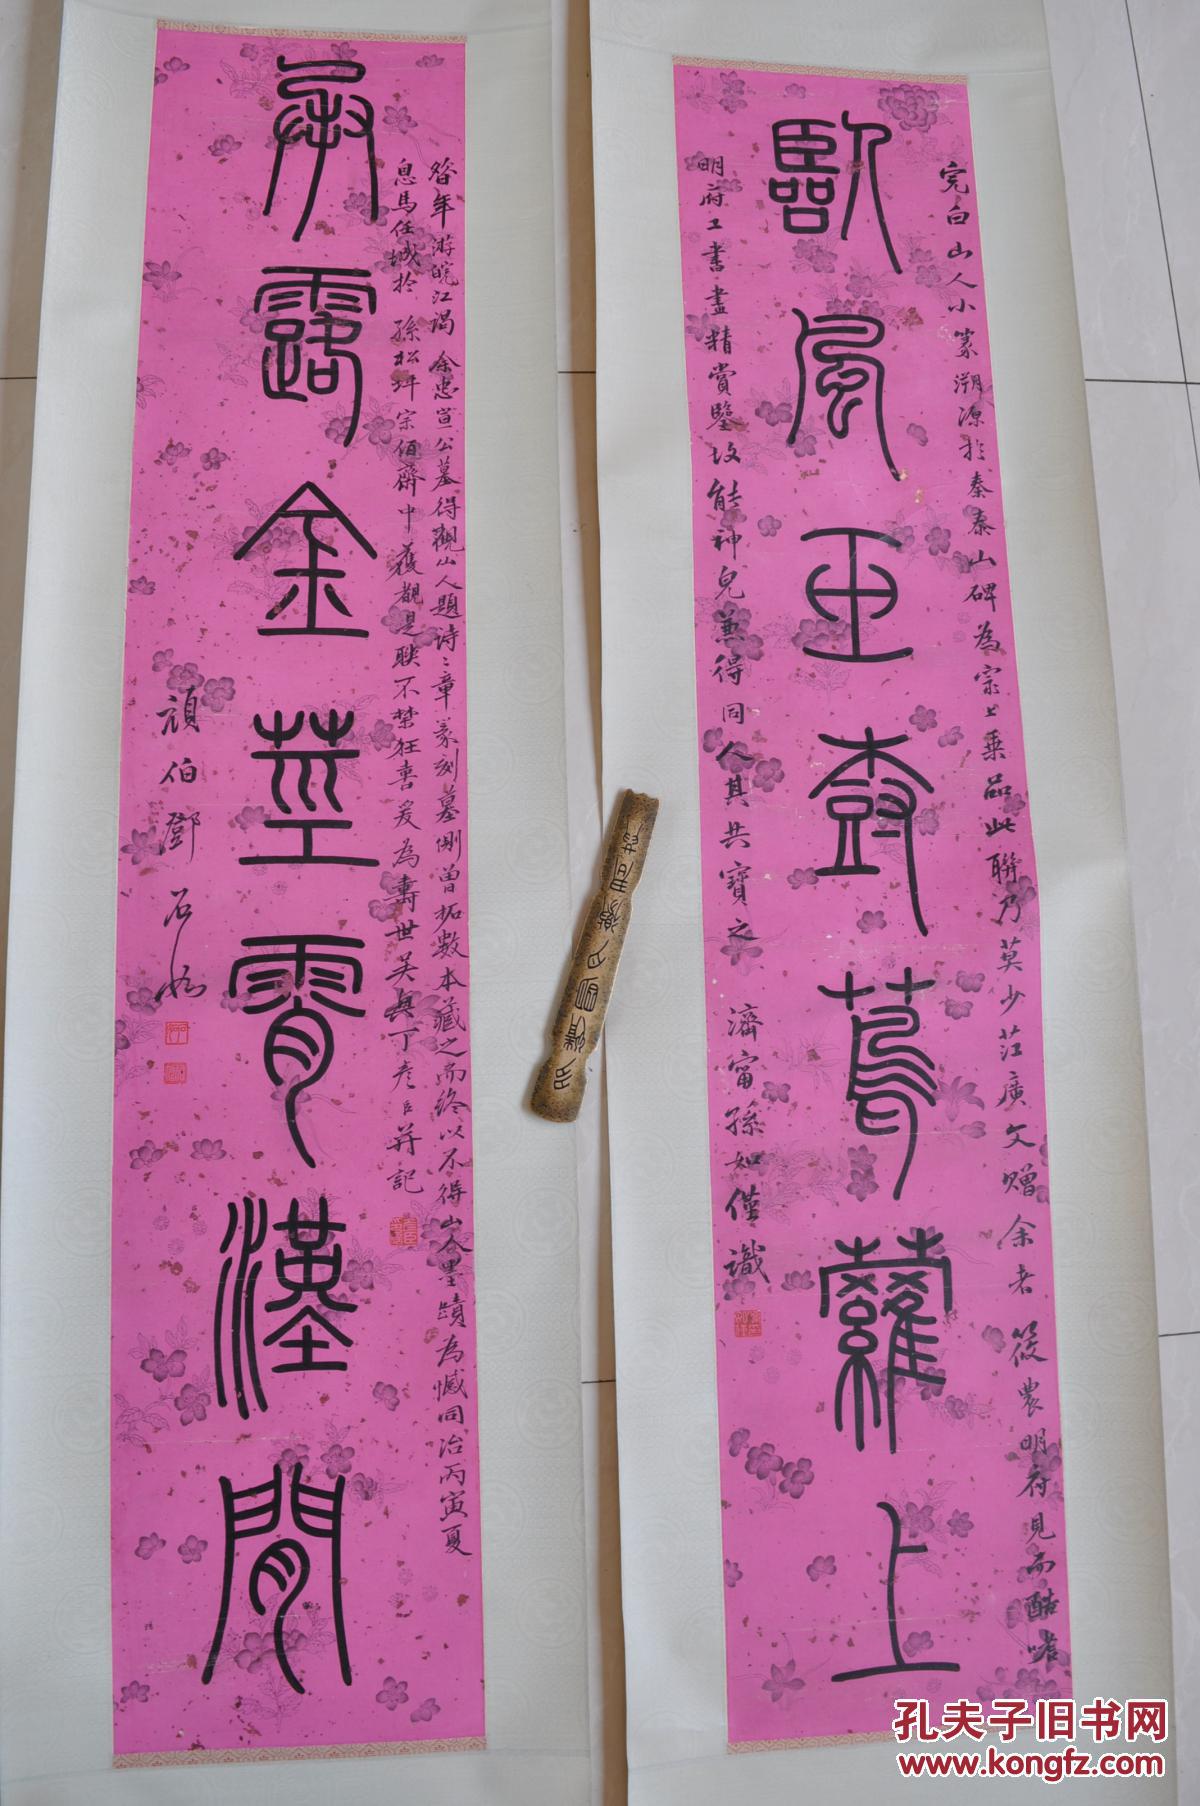 完白山人小篆溯源於秦泰山碑為宗上乗品此聯乃莫少茳廣文贈余者筱農明府見而酷嗜
臨風玉樹蔦蘿上
明府工書畫精賞鑒故能神皃兼得同人其共寶之 濟甯孫如僅識
年游皖江謁余忠宣公墓得觀山人題詩二章篆刻墓側曾拓數本藏之而終以不得山人墨蹟為憾同治丙寅夏
息馬任城於孫松坪宗伯齋中獲覩是聯不禁狂喜爰為壽世吳興丁彥臣并記
承露金莖霄漢間
頑伯鄧石如
孔夫子旧书网
www.kongfz.com